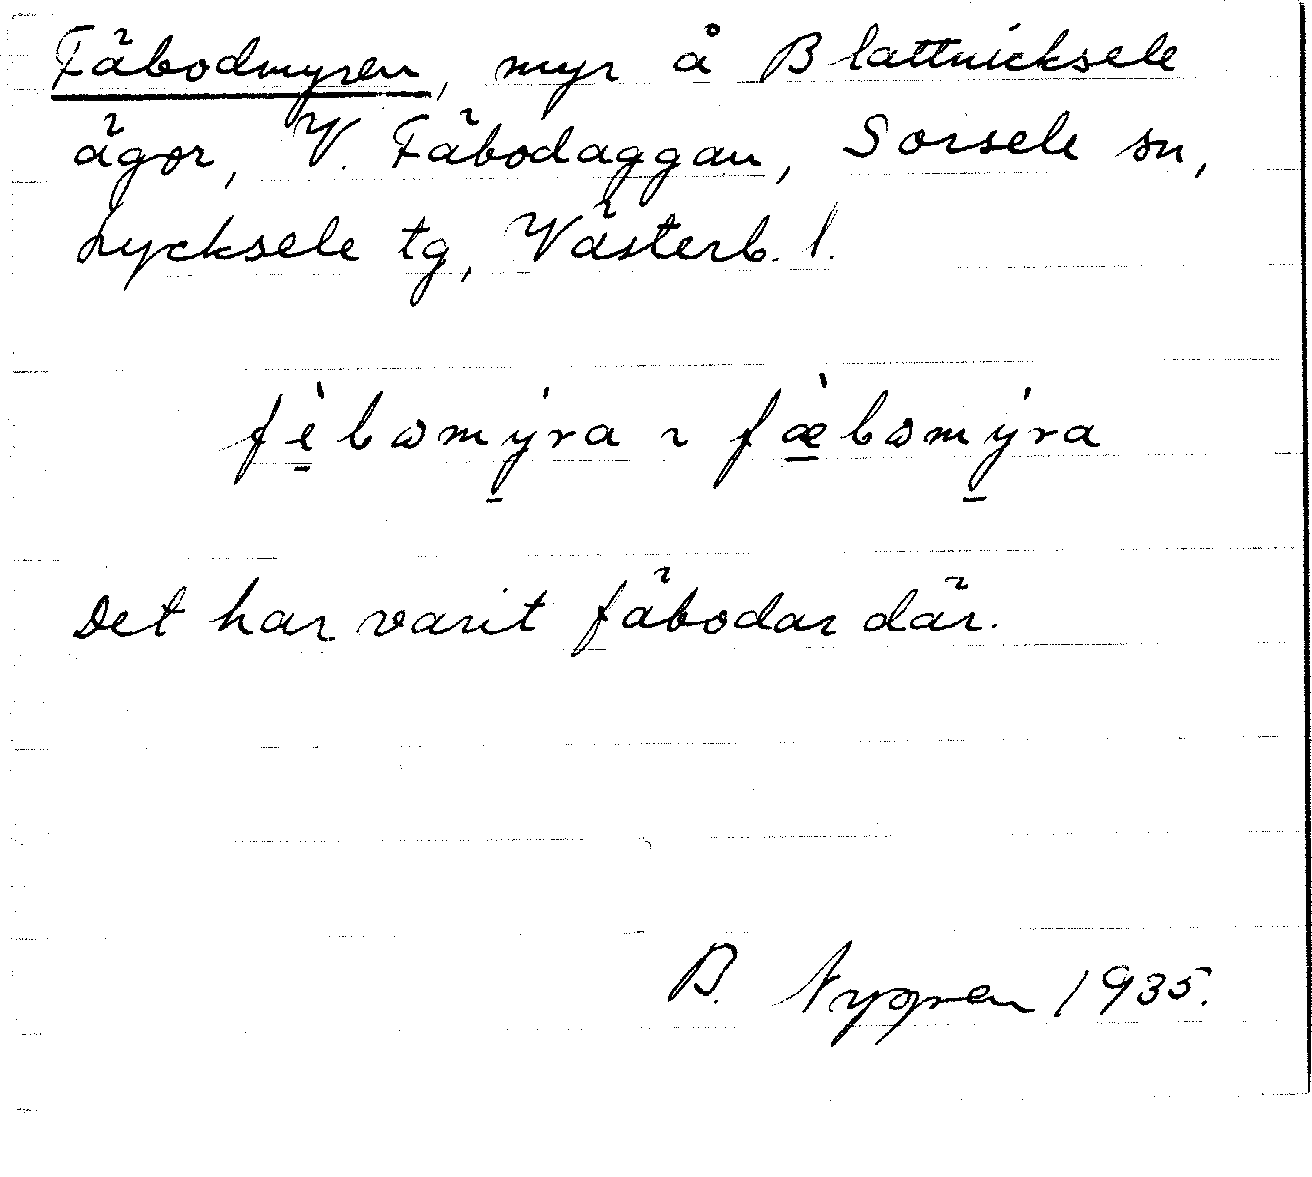 Fäbodmyren, myr å Blattnicksele
ägor, V. Fäbodaggan, Sorsele sn,
Lycksele tg, Västerb. l.
fè̠bωmý̠ra ~ fæ̠̀bωmý̠ra
Det har varit fäbodar där.
B. Nygren 1935.